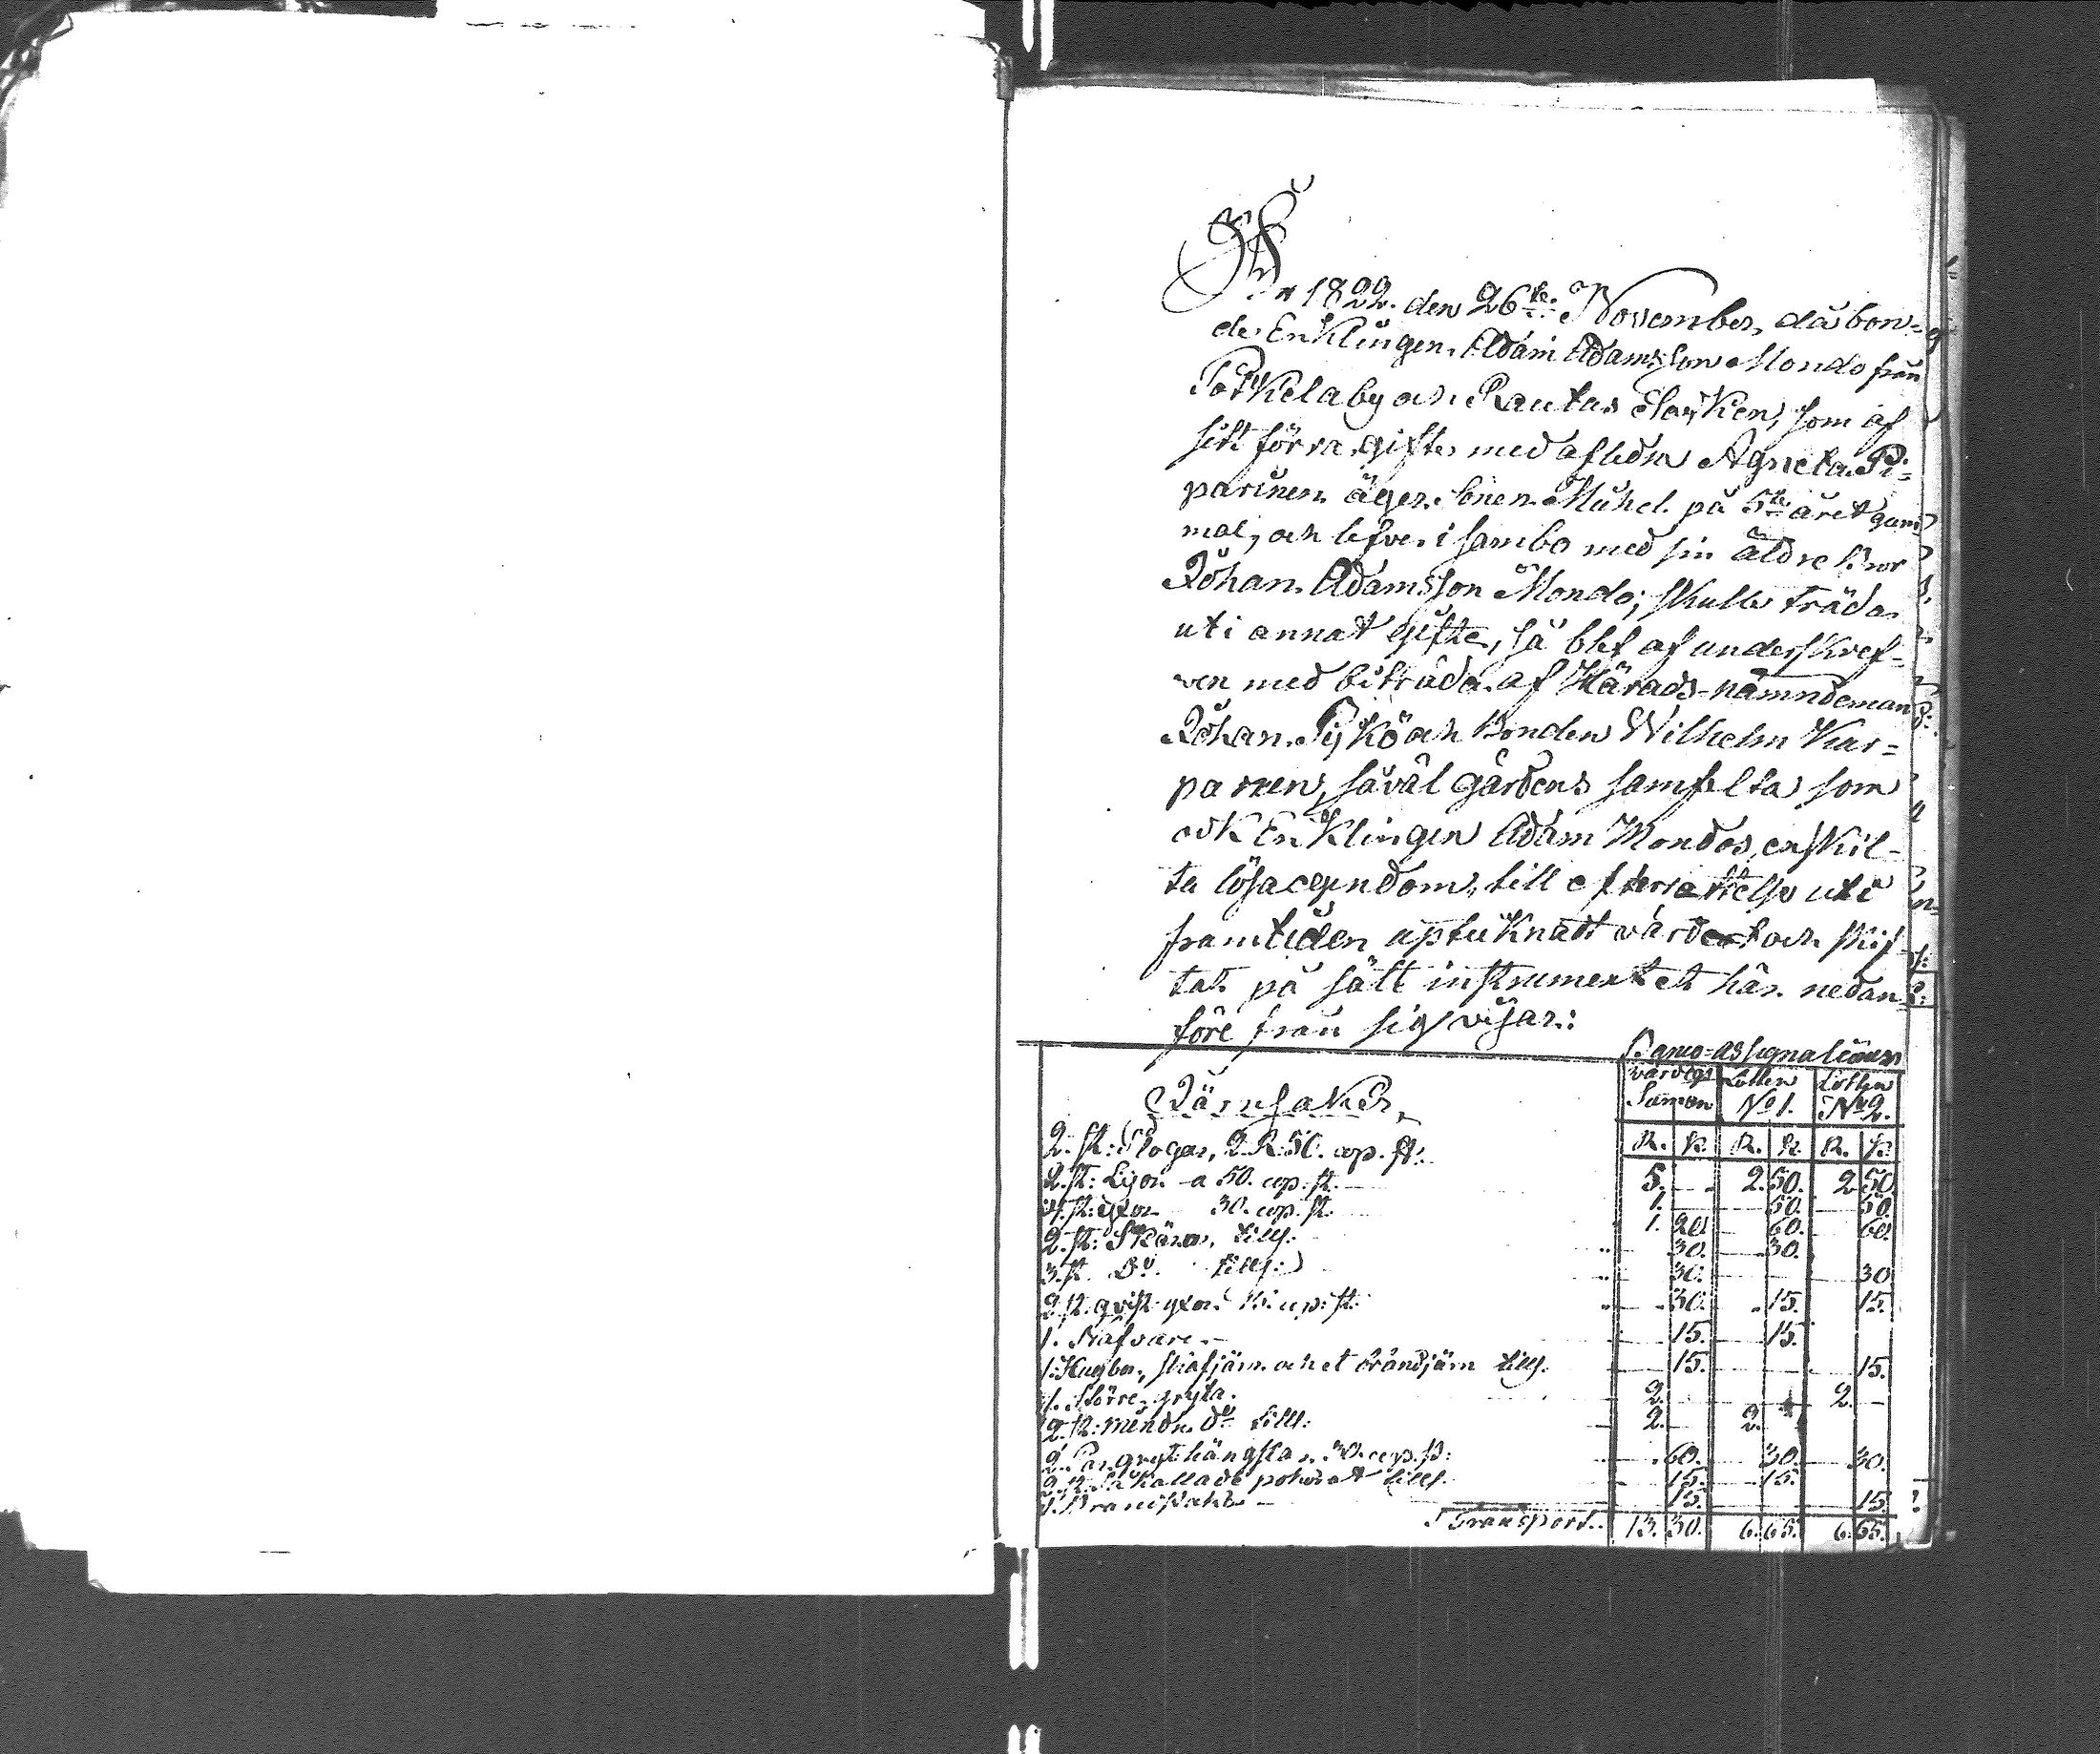 År 1822. den 26te November, då bon=
de Enklingen Adam Adamsson Mondo från
Pötkelaby och Rautus Sokn, som af
sitt förra gifte med afledna Agneta Pi=
parinen äger sonen Michel på 5te året gam=
mal, och lefver i sambo med sin äldre bror
Johan Adamsson Mondo; skulle träda
uti annat gifte, så blef af underskref=
ven med biträde af Härads-nämndeman
Johan Pykö och Bonden Wilhelm Kar=
panen, såväl gårdens samfelta som
ock Enklingen Adam Mondos enskil=
ta lösa egendom, till efterrättelse uti
framtiden uptecknatt värderat och skif=
tat på sätt instrumentet här nedan
före från sig visar:
Banco-assignationer
värdes Summan Lotten No 1. Lotten No 2.
Järnsaker
R. k. R. k. R. k.
2. st: Plogar, 2 R. 50. cop. st: 5. - 2. 50. 2. 50.
2. st: Lijor a 50. cop. st. 1. - 50. 50.
4. st: yxor 30. cop. st. 1. 20. 60. 60.
2. st: Skäror, tills. 30. 30.
3. st. Do. tills: 30. 30
2. st. qvist yxor 15. cop: st: 30. 15. 15.
1. Nafvare 15. 15.
1. och et brändjärn tills. 15. 15.
1. Större gryta. 2. - 2. -
2. st: mindre do tills: 2. 2.
2. Par grythängslar 30. cop. st: 60. 30. 30.
2. st. så kallade tills. 15. 15.
1. 15. 15
Transport.. 13. 30. 6. 65. 6. 65.